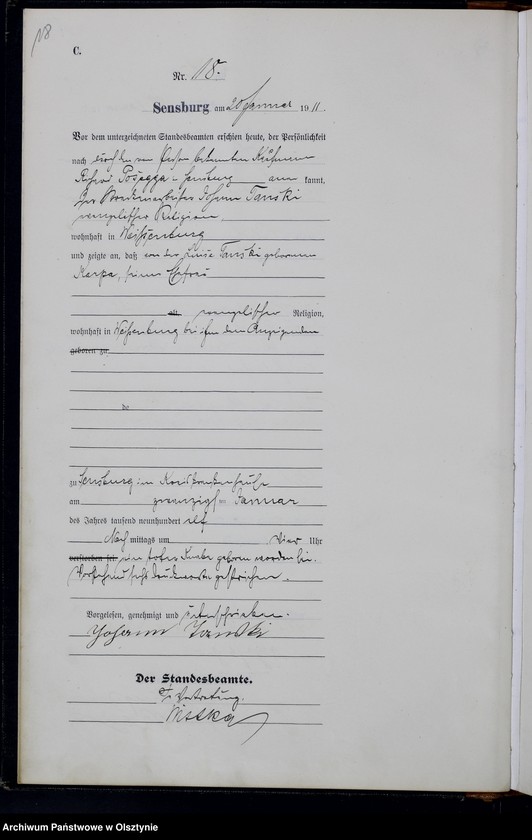 18
C.
Nr. 18.
Sensburg am 20 Januar 1911.
Vor dem unterzeichneten Standesbeamten erschien heute, der Persönlichkeit
nach durch den von Person bekannten
Posegga Sensburg anerkannt,
der Johann Tanski
evangelischer Religion
wohnhaft in Weissenburg
und zeigte an, daß von der Luise Tanski geborenen
Karpa, seiner Ehefrau
alt evangelischer Religion,
wohnhaft in Weissenburg bei ihm dem Anzeigenden
geboren zu
de
zu Sensburg im Kreiskrankenhause
am zwanzigsten Januar
des Jahres tausend neunhundert elf
Nachmittags um vier Uhr
verstorben sei ein toter Knabe geboren worden sei.
Vorstehend sechs Druckworte gestrichen.
Vorgelesen, genehmigt und unterschrieben.
Johann Tanski
Der Standesbeamte.
In Vertretung.